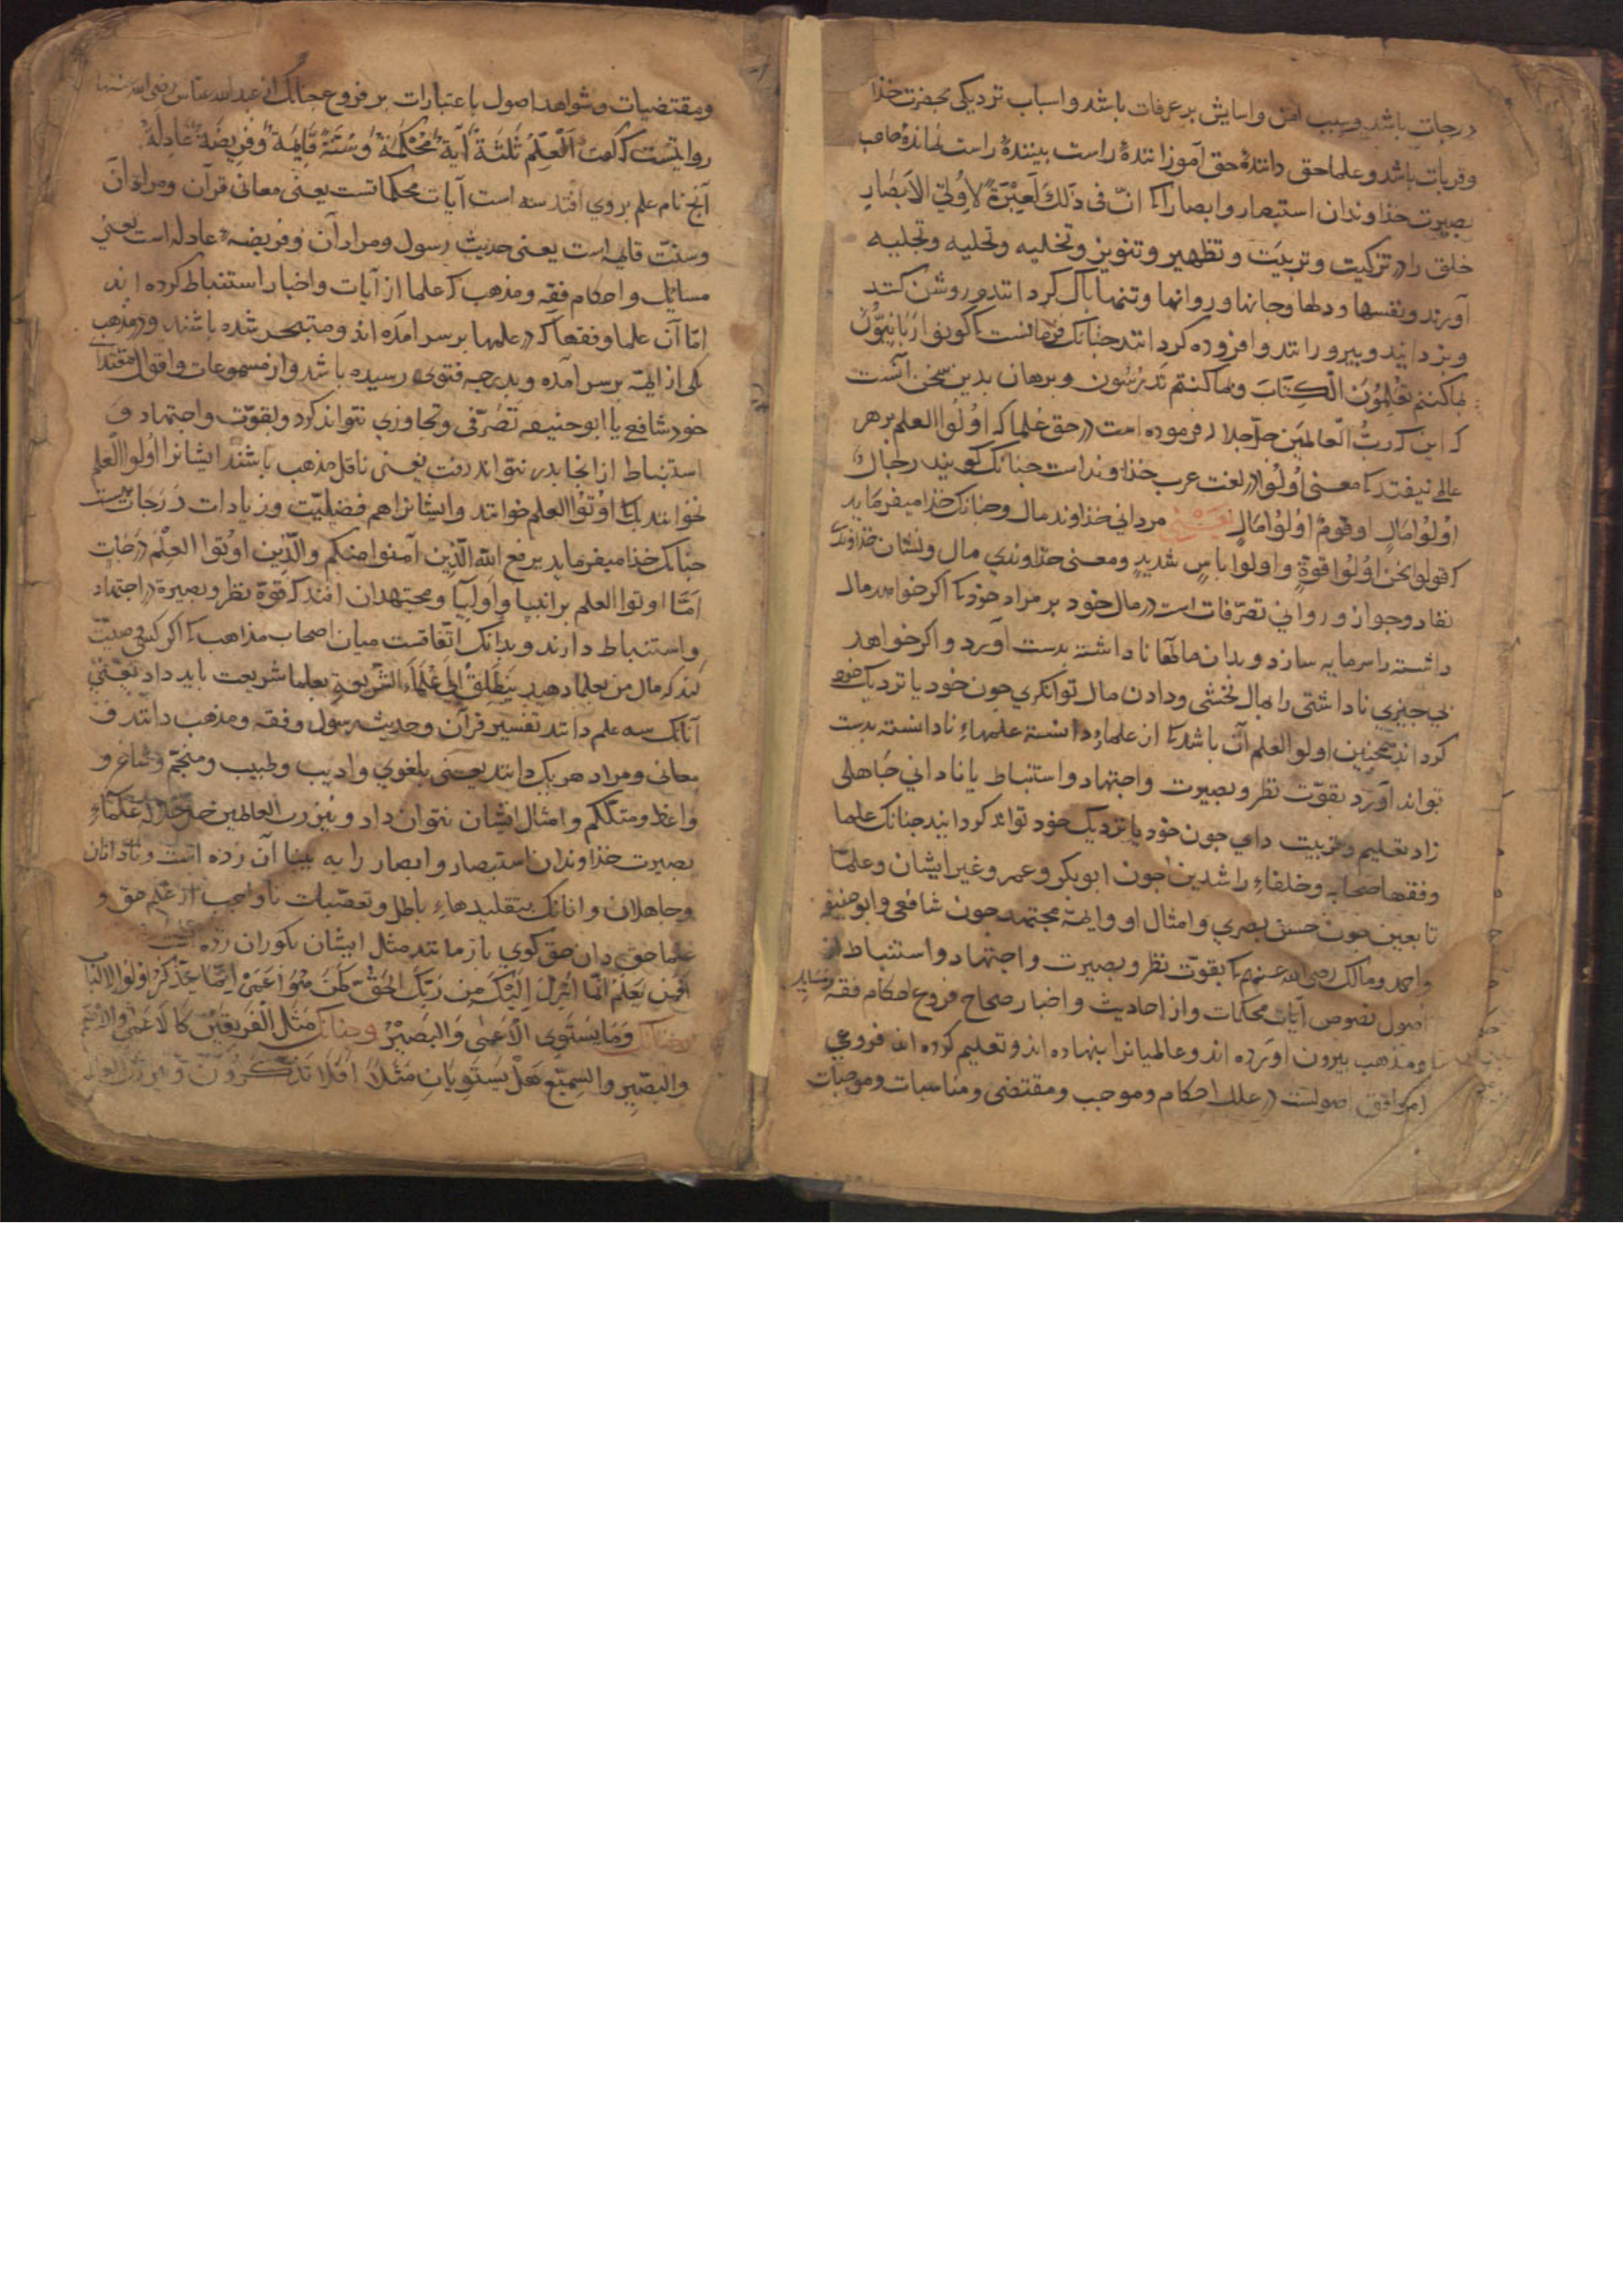 درجات باشد و سبب امن و اسایش بر عرفات باشد و اسباب نزدیکی بحضرت خذا
و قربات باشد و علما حق دانندۀ حق آموز انندۀ راست بینندۀ راست نمانده صاحب
بصیرت خذاوندان استبصار و ابصار را که انّ فی ذلک لَعِبْرَةً لاُولِی الاَبصَارِ
خلق را در تزکیت و تربیَت و تطهیر و تنویر و تخلیه و تحلیه و تجلیه
آورند و نفسها و دلها و جانها و روانها و تنها پاک کردانند و روشن کنند
و بزدایند و بپرورانند و افزوده کردانند جنانک فرمانست که کونوا رَبّانِیّینَ
بما کنتم تُعَلِّمُونَ الْکِتَابَ و بما کنتم تَدرُسُون و برهان بدین سخن آنست
که این که ربُّ الّعالمیَن جلّ جلاله فرموده است در حق عُلما که اوُلوا العلم بر هر
عالمی نیفتد که معنی اُولُوا در لغت عرب خذاوندانست جنانک کویند رجال
اوُلوُا مَالٍ او قومٌ اوُلوُا مَالٍ یَعنی مردانی خذاوند مال و جنانک خذا میفرماید
که قولوا نحن اوُلوُا قوةٍ و اولوا باسٍ شدیدٍ و معنی خذاوندی مال و نشان خذاوندی
نفاد و جواز و روایی تصرّفات است در مال خود بر مراد خود که اکر خواهد مال
داشته را سرمایه سازد و بدان مالها ناداشته بدست آورد و اکر خواهد
بی جیزی ناداشتی را بمال بخشی و دادن مال توانکری جون خود یا نزدیک خود
کرداند همجنین اولوا العلم آن باشد که از علماءِ دانسته علمهاءِ نادانسته بدست
تواند آورد بقوّت نظر و بصیرت و اجتهاد و استنباط یا نادانی جاهلی
زاد تعلیم و تربیت دادی جون خود یا نزدیک خود تواند کردانید جنانک علما
و فقها صحابه و خلفاءِ راشدین جون ابوبکر و عمر و غیر ایشان و علما
تابعین جون حسن بصری و امثال او و ایمّه مجتهد جون شافعی و ابوحنیفه
و احمد و مالک رضی الله عنهم که بقوّت نظر و بصیرت و اجتهاد و استنباط از
اصول نصوص آیات محکمات و از احادیث و اخبار صحاح فروع احکام فقه و مسایل
و مذهب بیرون اوَرده اند و عالمیانرا بنهاده اند و تعلیم کرده اند فروعی
که موافق اصولست در علل احکام و موجب و مقتضی و مناسبات و موجبات
و مقتضیات و شواهد اصول با عتبارات بر فروع جنانک از عبدالله عبّاس رضی الله عنهما
روایتست که کفت اَلْعِلمُ ثَلثَةٌ آیَةٌ مُحْکَمَةٌ وَسُنّةٌ قَایِمَةٌ وَفرِیضَةٌ عَادِلَةٌ
آنج نام علم بر وی افتد سه است آیات محکماتست یعنی معانی قرآن و مراد آن
و سنّت قایمه است یعنی حدیث رسول و مراد آن و فریضۀ عادله است یعنی
مسایل و احکام فقه و مذهب که علما از آیات و اخبار استنباط کرده اند
امّا آن علما و فقها که در علمها بر سر امَده اند و متبحر شده باشند و در مذهب
یکی از ایمّه بر سر آمده و بدرجه فتوی رسیده باشد و از مسموعات و اقوال مقتدای
خود شافعی یا ابوحنیفه تصَرّفی و تجاوزی نتواند کرد و بقوّت و اجتهاد و
استنباط از انجا بدر نتواند رفت یعنی ناقل مذهب باشند ایشانرا اوُلوا العلم
نخوانند بلک اوُتوُا العلم خوانند و ایشانرا هم فضیلتّ و زیادات دَرَجات هست
جنانک خذا میفرماید یرفع الله الّذِین آمنوا منکم والّذِین اوتُوا العِلْمَ دَرَجَاتٍ
اَمّا اوتوا العلم بر انبیا و اَولیا و مجتهدان افتد که قوّة نظر و بصیرة در اجتهاد
و استنباط دارند و بدانک اتّفاقست میان اصحاب مذاهب که اکر کسی وصیّت
کند که مال من بعلما دهید یَنطَلِقْ اِلیَ عُلَمَاء الشّریعَةِ بعلما شریعت باید داد یَعنی
آنانک سه علم دانند تفسیر قرآن و حدیث رسول و فقه و مذهب دانند و
معانی و مراد هر یک دانند یعنی بلغوی و ادیب و طبیب و منجّم و شاعر و
واعظ و متکلّم و امثال ایشان نتوان داد و نیز رب العالمین جلّ جلاله علماءِ
بصیرت خذاوندان استبصار و ابصار را به بینا آن زده است و نادانان
و جاهلان و انانک بتقلیدهاءِ باطل و تعصّبات ناواجب از علم حق و
علما حق دان حق کوی باز مانند مثل ایشان بکوران زده است
اَفَمَن یَعلَمُ اَنّما اُنزِلَ اِلیْکَ مِن رَبِّکَ الحَقُّ کَمَن هُوَ اَعمَیْ اِنّما یَتَذَکّرُ اوُلوُا الالباب
وجنانک وَمَا یَستَوِی الاَعمی وَالبَصِیْرُ وجنانک مَثَلُ الفَرِیقَیْنِ کَالاَعمَی والاصَمِّ
والبَصِیرِ والسمِیْعِ هَلْ یَستَوِیَانِ مَثَلاً اَفَلا تَذَکَّرُونَ